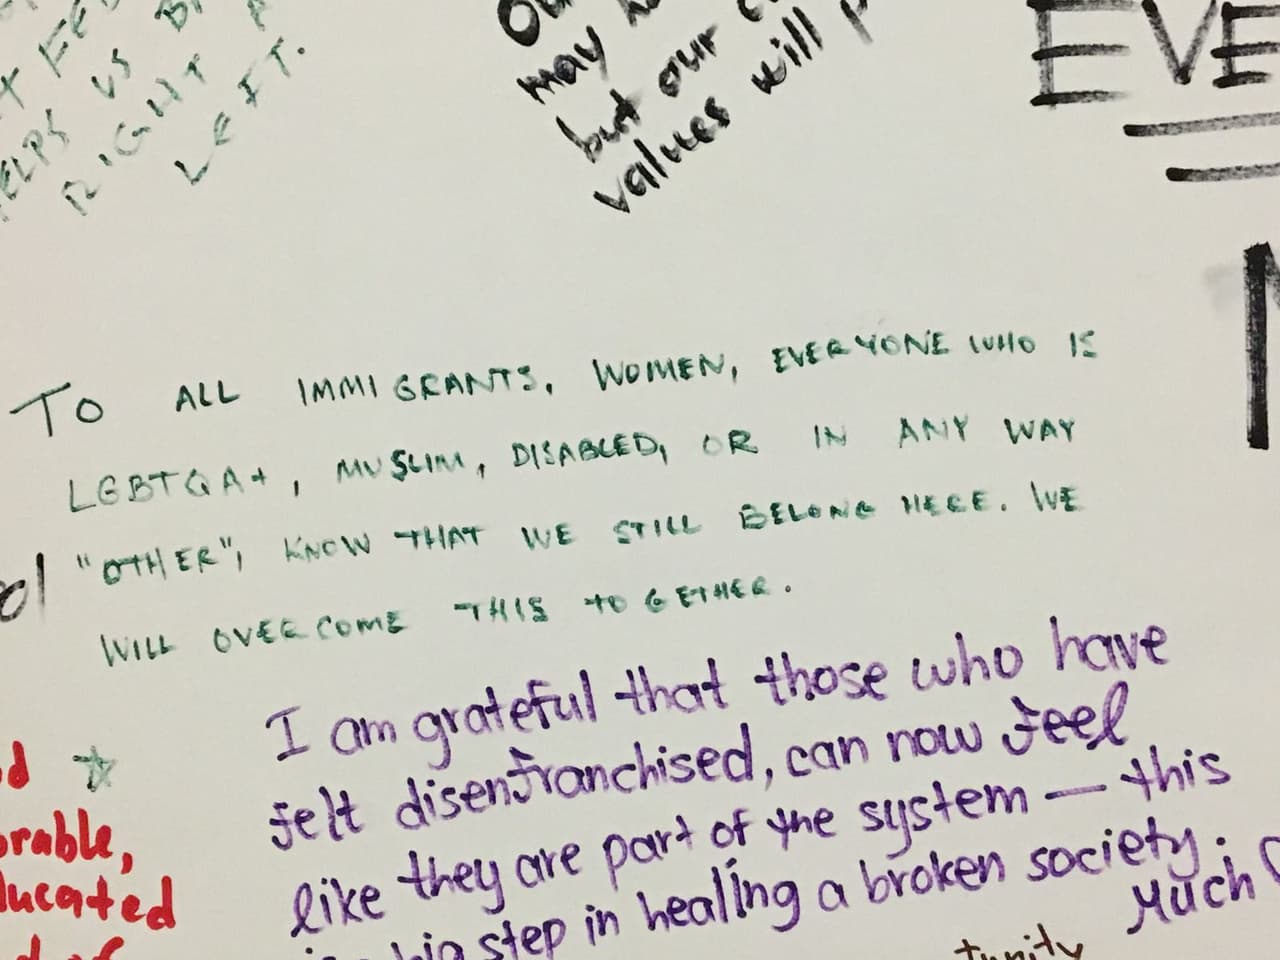 HELPS US
RIGHT
LEFT.
may
but our
values will
EVE
TO ALL IMMIGRANTS, WOMEN, EVERYONE WHO IS
LGBTQA+, MUSLIM, DISABLED, OR IN ANY WAY
"OTHER", KNOW THAT WE STILL BELONG HERE. WE
WILL OVERCOME THIS TOGETHER.
I am grateful that those who have
felt disenfranchised, can now feel
like they are part of the system — this
is a big step in healing a broken society.
Much